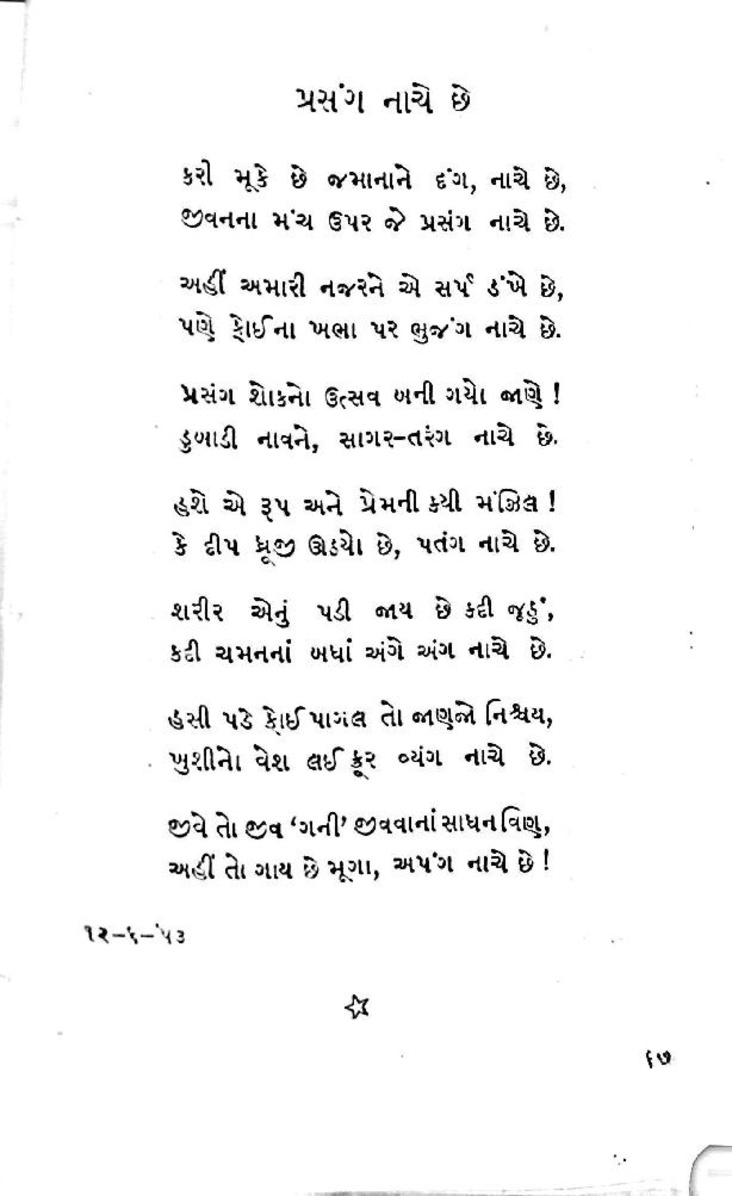 પ્રસંગ નાચે છે
કરી મૂકે છે જમાનાને દંગ, નાચે છે,
જીવનના મંચ ઉપર જે પ્રસંગ નાચે છે.
અહીં અમારી નજરને એ સર્પ ડંખે છે,
પણે કોઈના ખભા પર ભુજંગ નાચે છે.
પ્રસંગ શોકનો ઉત્સવ બની ગયો જાણે !
ડુબાડી નાવને, સાગર-તરંગ નાચે છે.
હશે એ રૂપ અને પ્રેમની કયી મંઝિલ !
કે દીપ ધ્રૂજી ઊઠયો છે, પતંગ નાચે છે.
શરીર એનું પડી જાય છે કદી જૂઠું,
કદી ચમનનાં બધાં અંગે અંગ નાચે છે.
હસી પડે કોઈ પાગલ તો જાણજો નિશ્ચય,
ખુશીનો વેશ લઈ ક્રૂર વ્યંગ નાચે છે.
જીવે તો જીવ ‘ગની’ જીવવાનાં સાધન વિણ,
અહીં તો ગાય છે મૂગા, અપંગ નાચે છે !
૧૨-૬-'૫૩
૬૭